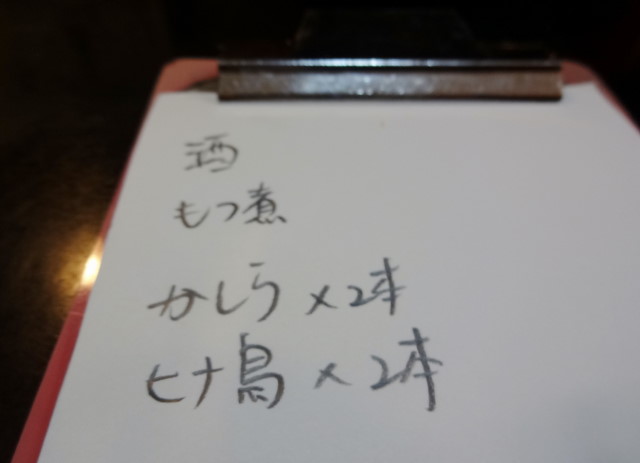 酒
もつ煮
かしら×2本
ヒナ鳥×2本